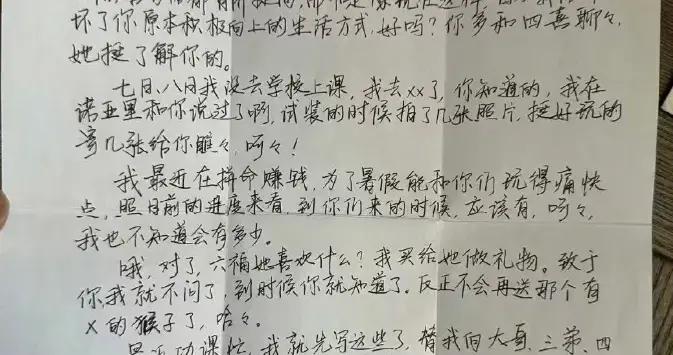 坏了你原本积极向上的生活方式,好吗?你多和四喜聊々,
她挺了解你的。
七日、八日我没去学校上课,我去xx了,你知道的,我在
诺亚里和你说过了啊,试装的时候拍了几张照片,挺好玩的
寄几张给你瞧々,呵々!
我最近在拼命赚钱,为了暑假能和你们玩得痛快
点,照目前的进度来看,到你们来的时候,应该有,呵々,
我也不知道会有多少。
哦,对了,六福她喜欢什么?我买给她做礼物。致于
你,我就不问了,到时候你就知道了。反正不会再送那个有
X的猴子了,哈々。
最近功课忙,我就先写这些了,替我向大哥、三弟、四